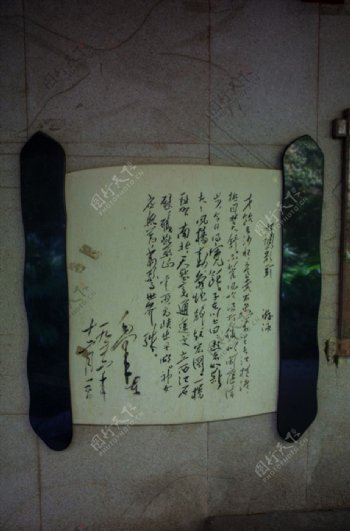 水调歌头 游泳
才饮长沙水又食武昌鱼万里长江横渡
极目楚天舒不管风吹浪打胜似闲庭信
步今日得宽余子在川上曰逝者如斯
夫风樯动龟蛇静起宏图一桥
飞架南北天堑变通途更立西江石
壁截断巫山云雨高峡出平湖神女
应无恙当惊世界殊
毛泽东
一九五六年
十二月五日